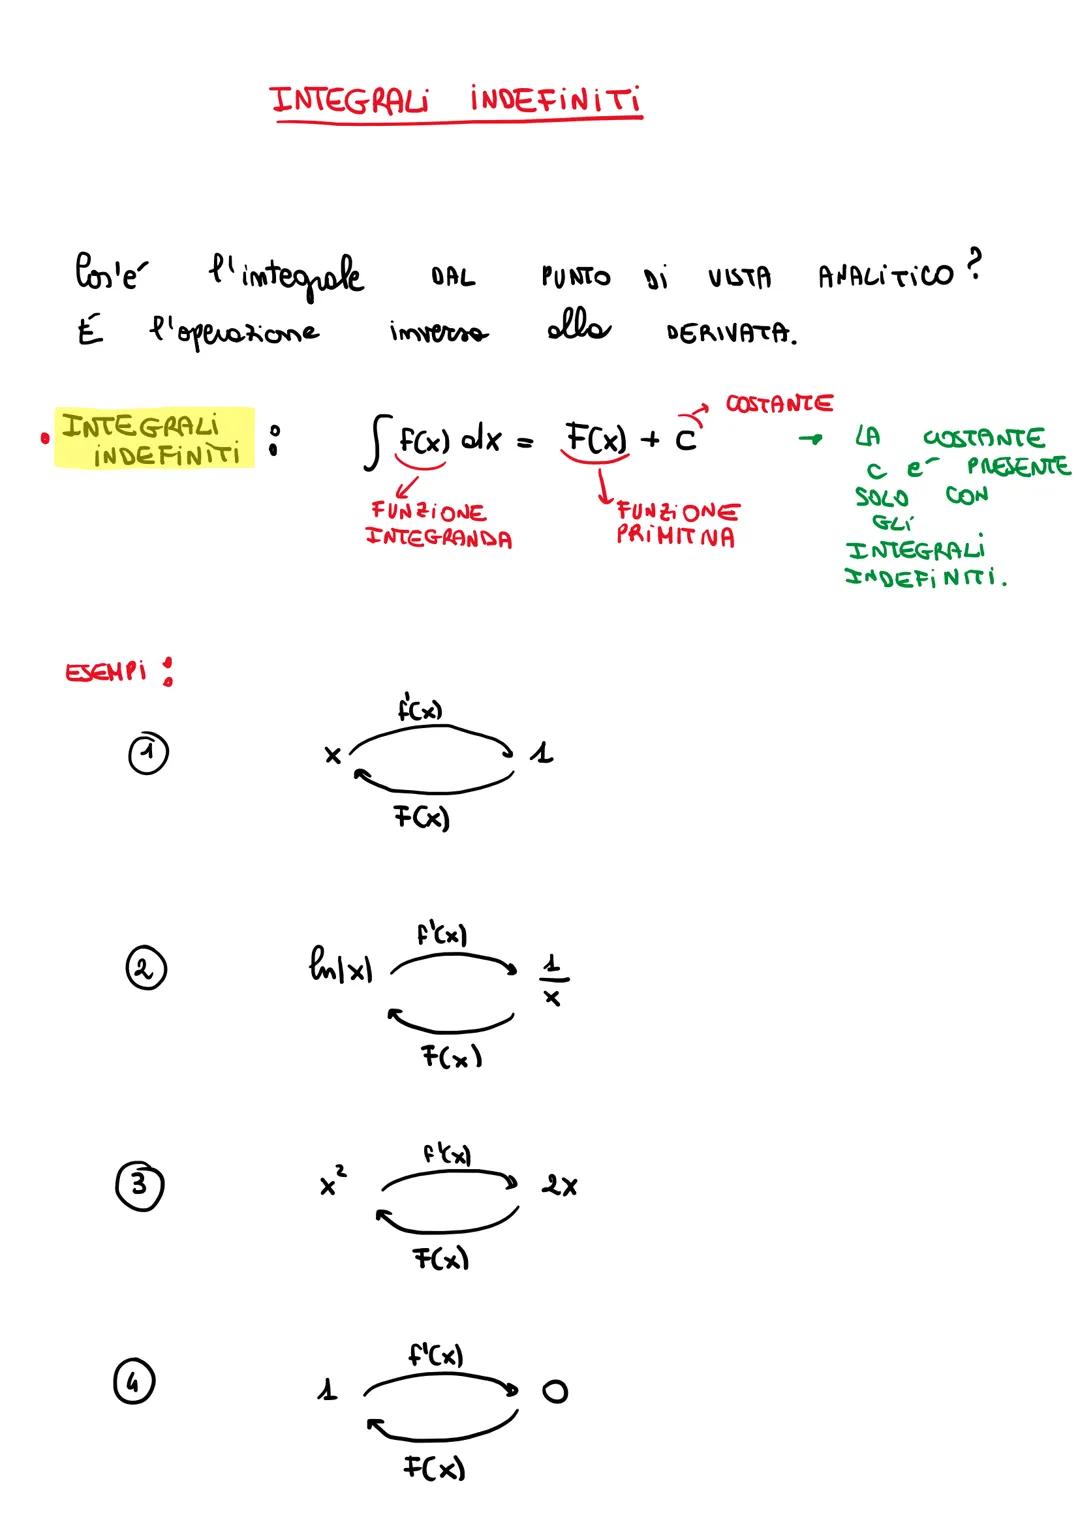 INTEGRALI INDEFINITI
Cos'é l'integrale DAL PUNTO DI VISTA ANALITICO?
É l'operazione inversa alla DERIVATA.
• INTEGRALI INDEFINITI : ∫ f(x) dx = F(x) + c
COSTANTE
FUNZIONE INTEGRANDA
FUNZIONE PRIMITIVA
→ LA COSTANTE
c é PRESENTE
SOLO CON
GLI
INTEGRALI
INDEFINITI.
ESEMPI:
f'(x)
1 x 1
F(x)
f'(x)
2 ln|x| 1/x
F(x)
f'(x)
3 x² 2x
F(x)
f'(x)
4 1 0
F(x)